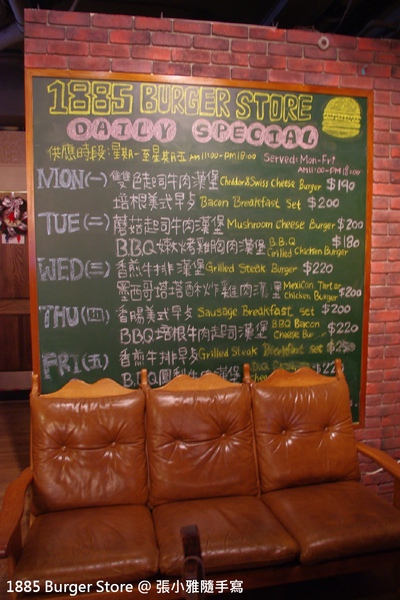 1885 BURGER STORE
DAILY SPECIAL
供應時段:星期一至星期五 AM11:00-PM18:00 Served: Mon-Fri
AM11:00-PM18:00
MON(一) 雙色起司牛肉漢堡 Cheddar&Swiss Cheese Burger $190
培根美式早点 Bacon Breakfast Set $200
TUE(二) 蘑菇起司牛肉漢堡 Mushroom Cheese Burger $200
B.B.Q 烤雞胸肉漢堡 B.B.Q Grilled Chicken Burger $180
WED(三) 香煎牛排漢堡 Grilled Steak Burger $220
墨西哥塔塔酥炸雞肉漢堡 Mexican Tartar Chicken Burger $200
THU(四) 香腸美式早点 Sausage Breakfast set $200
BBQ培根牛肉起司漢堡 BBQ Bacon Cheese Bur $220
FRI(五) 香煎牛排早点 Grilled Steak Breakfast set $250
牛肉漢堡
1885 Burger Store @ 張小雅隨手寫